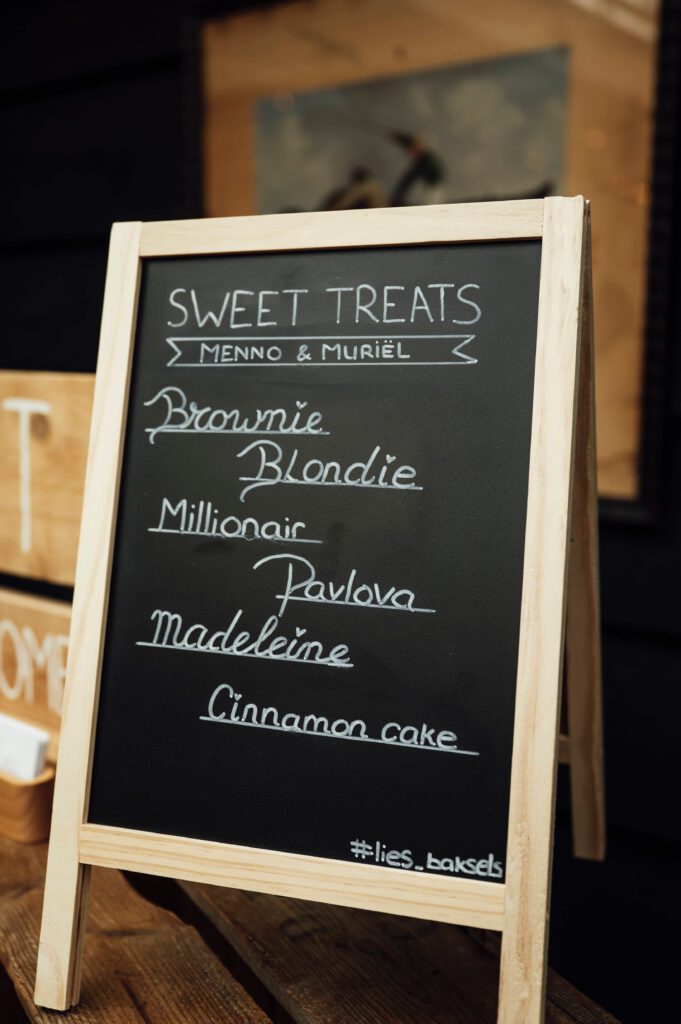 SWEET TREATS
MENNO & MURIËL
Brownie
Blondie
Millionair
Pavlova
Madeleine
Cinnamon cake
#lies_baksels
T
OME